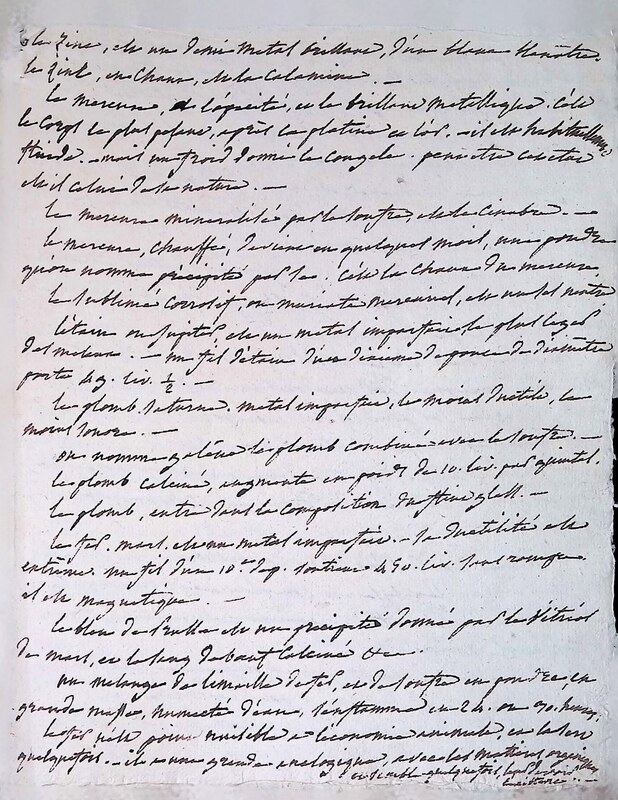 le zinc, est un demi métal brillant, d'un blanc bleuâtre.
le zink, en chaux, est la calamine. —
le mercure, a l'opacité, et le brillant métallique. c'est
le corps le plus pesant, après la platine et l'or. — il est habituellement
fluide. — mais un froid donné le congele. peut etre cet etat
est il celui de la nature. —
le mercure minéralisé par le soufre, est le cinabre. —
le mercure, chauffé, devient en quelques mois, une poudre
qu'on nomme précipité par se. c'est la chaux du mercure.
le sublimé corrosif, ou muriate mercuriel, est un sel neutre
l'étain ou jupiter, est un metal imparfait, le plus leger
des métaux. — un fil d'étain d'un dixieme de pouce de diamètre
porte 49. liv. ½. —
le plomb, saturne. metal imparfait, le moins ductile, le
moins sonore. —
on nomme galène le plomb combiné avec le soufre. —
le plomb calciné, augmente en poids de 10. liv. par quintal.
le plomb, entre dans la composition du flint glass. —
le fer. mars. est un metal imparfait. — sa ductilité est
extrême. un fil d'un 10e. de p. soutient 450. liv. sans rompre.
il est magnétique. —
le bleu de Prusse est un précipité donné par le vitriol
de mars, et le sang de bœuf calciné &c.
un mélange de limaille de fer, et de soufre en poudre en
grande masse, humecté d'eau, s'enflamme en 24. ou 30. heures.
le fer n'est point nuisible à l'économie animale, et la sert
quelquefois. — il a une grande analogie, avec les matieres organiques,
et semble quelquefois leur devoir
l'existence. —